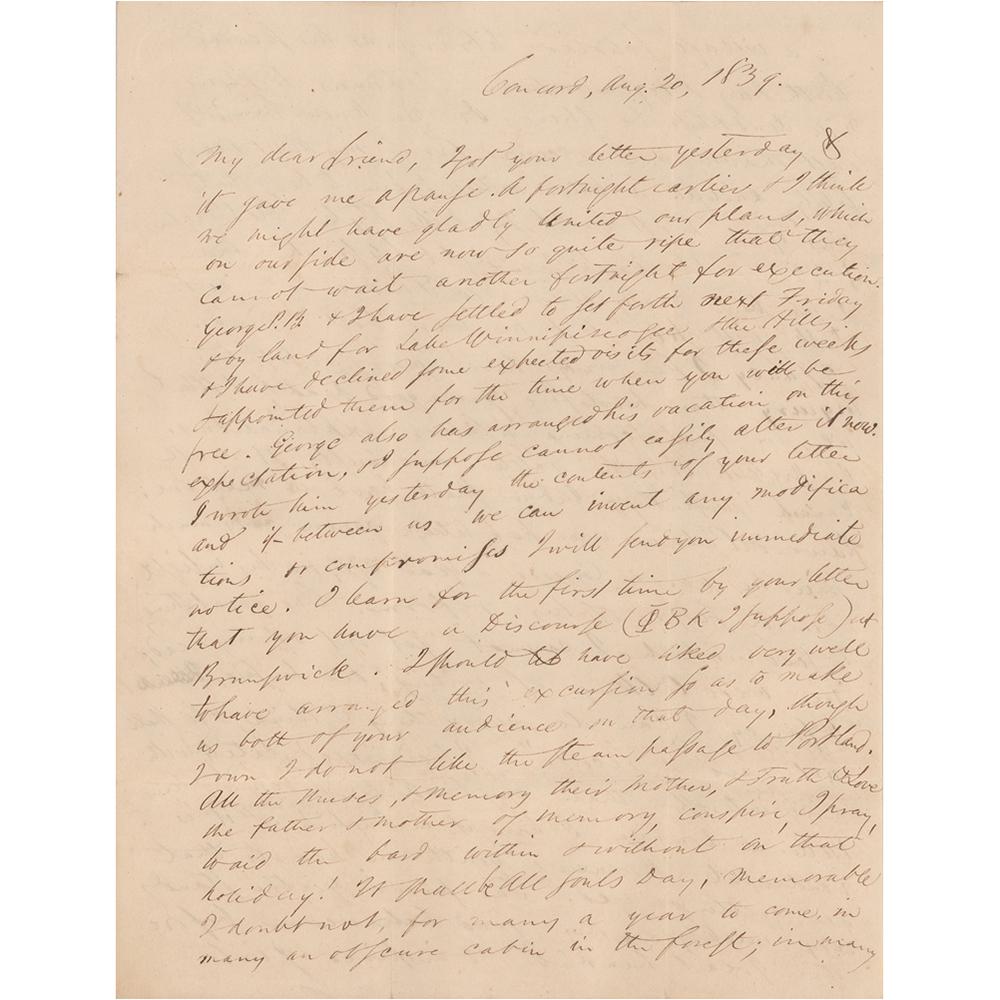 Concord, Aug. 20, 1839.
My dear friend, I got your letter yesterday &
it gave me a pause. A fortnight earlier & I think
we might have gladly united our plans, which
on our side are now so quite ripe that they
cannot wait another fortnight for execution.
George P. B. & I have settled to set forth next Friday
& by land for Lake Winnipiseogee & the Hills.
& I have declined some expected visits for these weeks
& appointed them for the time when you will be
free. George also has arranged his vacation on this
expectation, & I suppose cannot easily alter it now.
I wrote him yesterday the contents of your letter
and if between us we can invent any modifica
tions or compromises I will send you immediate
notice. I learn for the first time by your letter
that you have a Discourse (ΦBK I suppose) at
Brunswick. I should have liked very well
to have arranged this excursion so as to make
us both of your audience on that day, though
I own I do not like the steam passage to Portland.
All the Muses, & Memory their mother, & Truth & Love
the father & mother of memory, conspire, I pray,
to aid the bard within & without on that
holiday! It shall be All Souls Day, memorable
I doubt not, for many a year to come, in
many an obscure cabin in the forest; in many